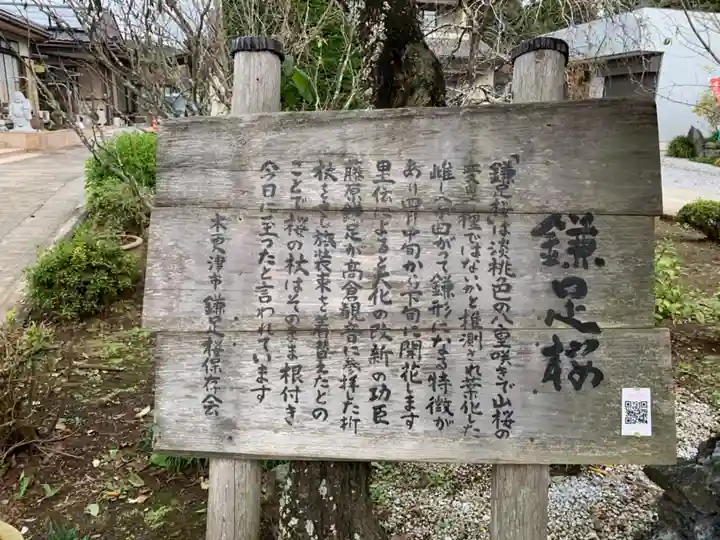 鎌足桜
「鎌足桜は淡桃色の八重咲きで山桜の
変種ではないかと推測され葉化した
雌しべが曲がって鎌形になる特徴が
あり四月中旬から下旬に開花します
里伝によると大化の改新の功臣
藤原鎌足が高倉観音に参拝した折
杖をさし旅装束を着替えたとの
ことで桜の杖はそのまま根付き
今日に至ったと言われています
木更津市 鎌足桜保存会